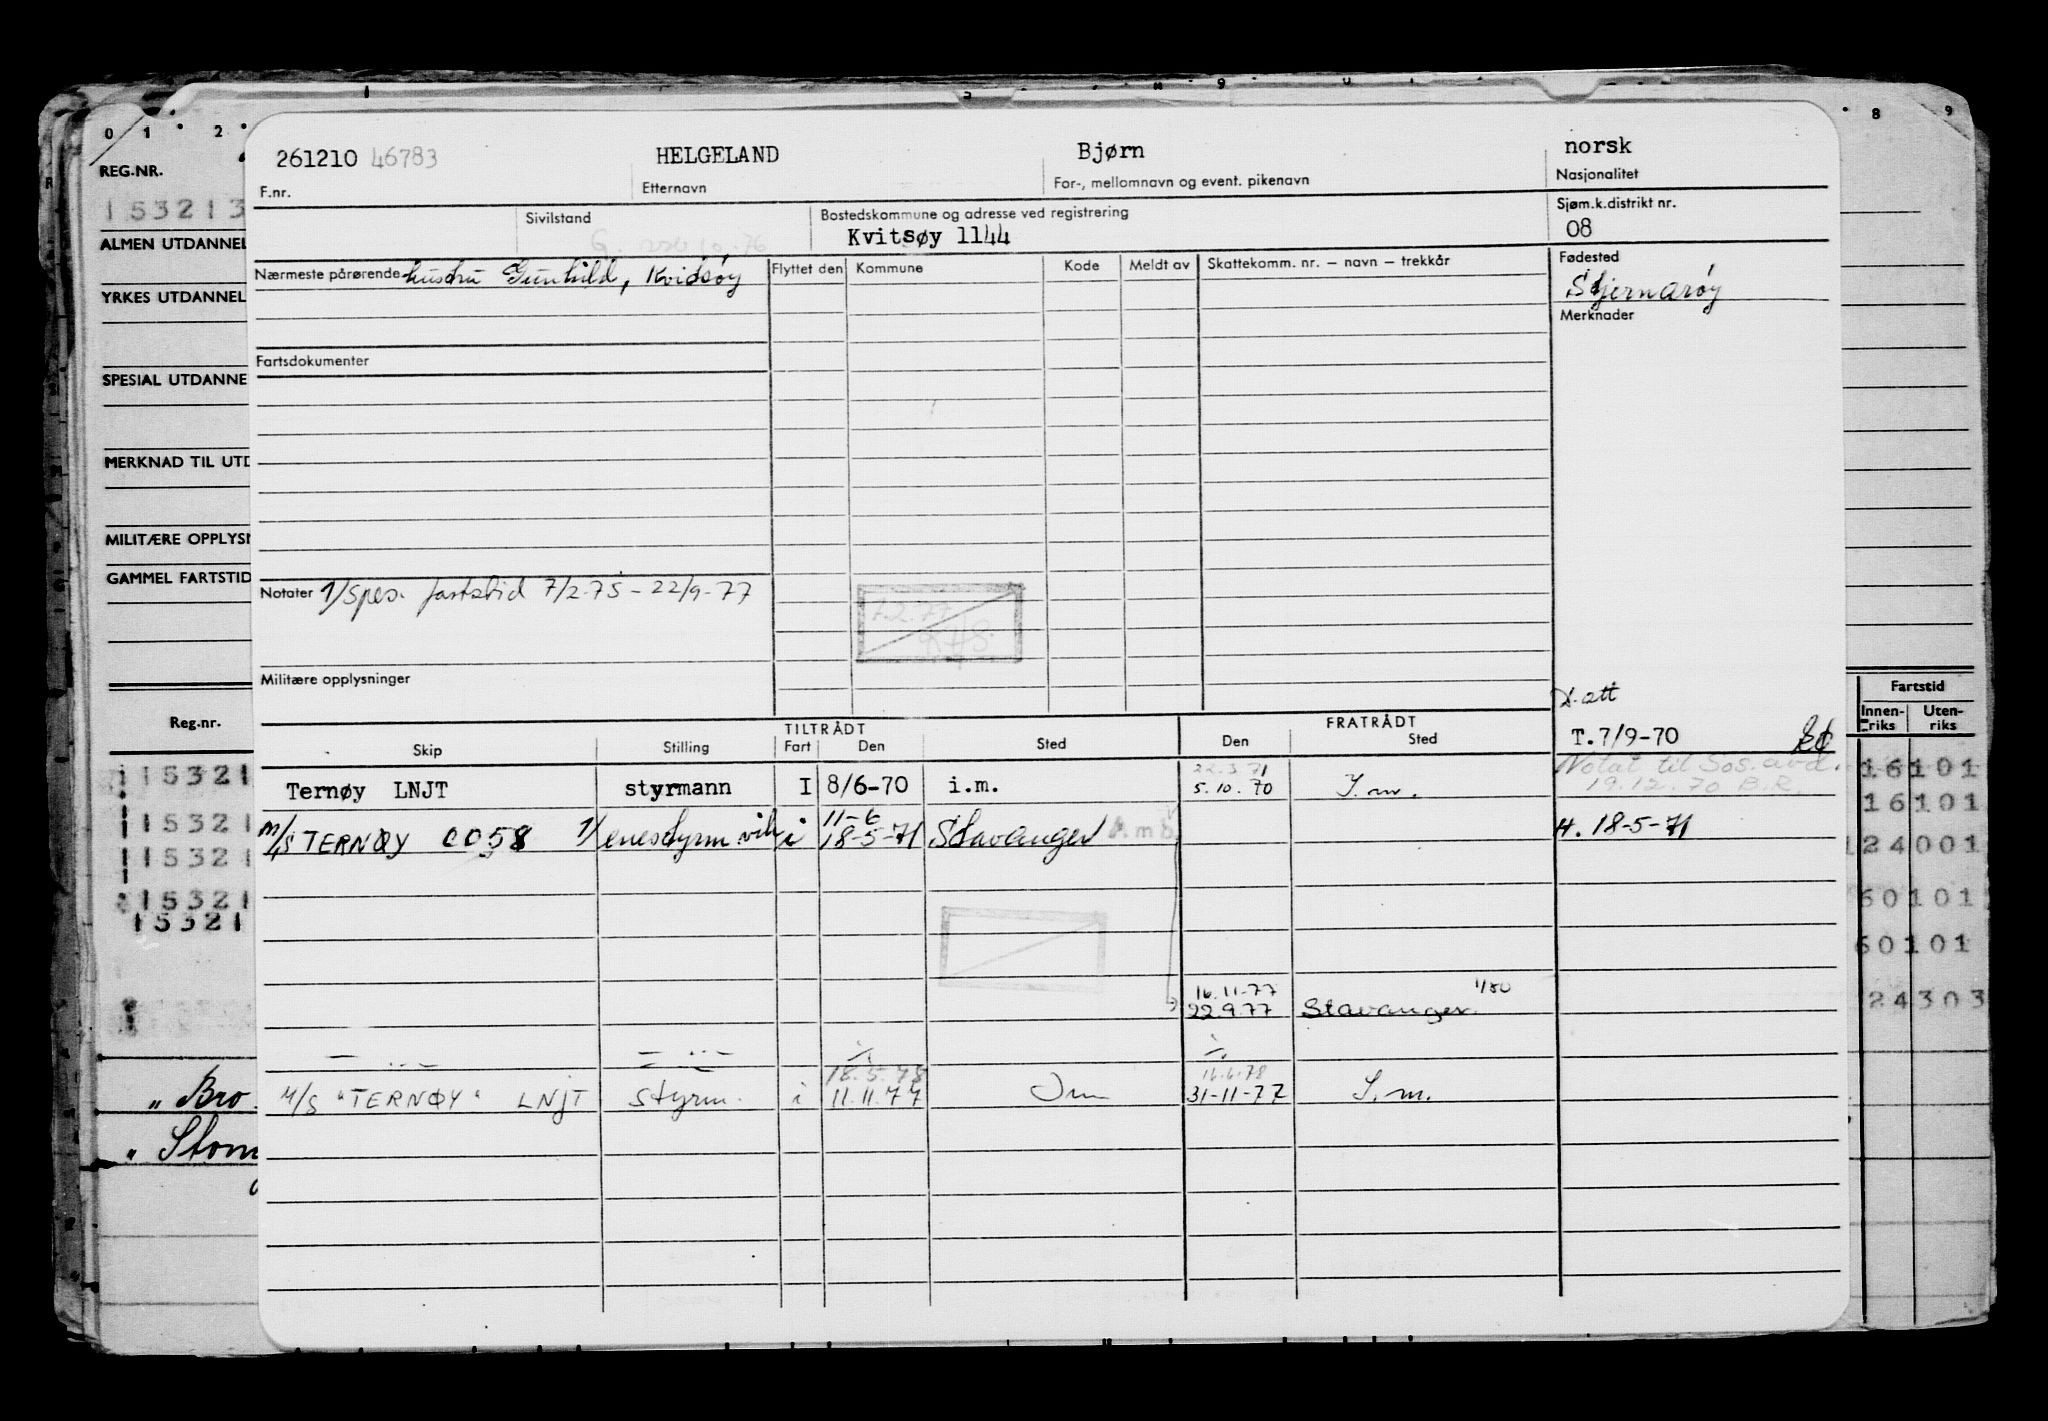 0 1 2 8 9
261210 46783 HELGELAND Bjørn norsk
F.nr. Etternavn For-, mellomnavn og event. pikenavn Nasjonalitet
REG.NR.
153213
Sivilstand Bostedskommune og adresse ved registrering Sjøm.k.distrikt nr.
Kvitsøy 1144 08
ALMEN UTDANNEL
Nærmeste pårørende hustru Gunhild, Kvidsøy Flyttet den Kommune Kode Meldt av Skattekomm. nr. – navn – trekkår Fødested
Stjernarøy
YRKES UTDANNEL
Merknader
Fartsdokumenter
SPESIAL UTDANNE
MERKNAD TIL UTD
MILITÆRE OPPLYSN
GAMMEL FARTSTID
Notater 1/ Spes. fartstid 7/2-75 - 22/9-77
Militære opplysninger
Fartstid
Reg.nr. Innen-riks Uten-riks
TILTRÅDT FRATRÅDT
Skip Stilling Fart Den Sted Den Sted
T.7/9-70
22.3.71
Ternøy LNJT styrmann I 8/6-70 i.m. 5.10.70 I.m.
Notat til Sos.avd.
19.12.70 B.R.
15321 16101
15321 16101
11-6
M/S TERNØY 0058 1/ enestyrm. vik i 18-5-71 Stavanger H. 18-5-71
15321 24001
15321 60101
15321 60101
16.11-77 1/80
22.9.77 Stavanger
24303
18.5.78 16.6.78
M/S "TERNØY" LNJT styrm. i 11.11.77 Im 31-11-77 I.m.
" Bro
" Stom